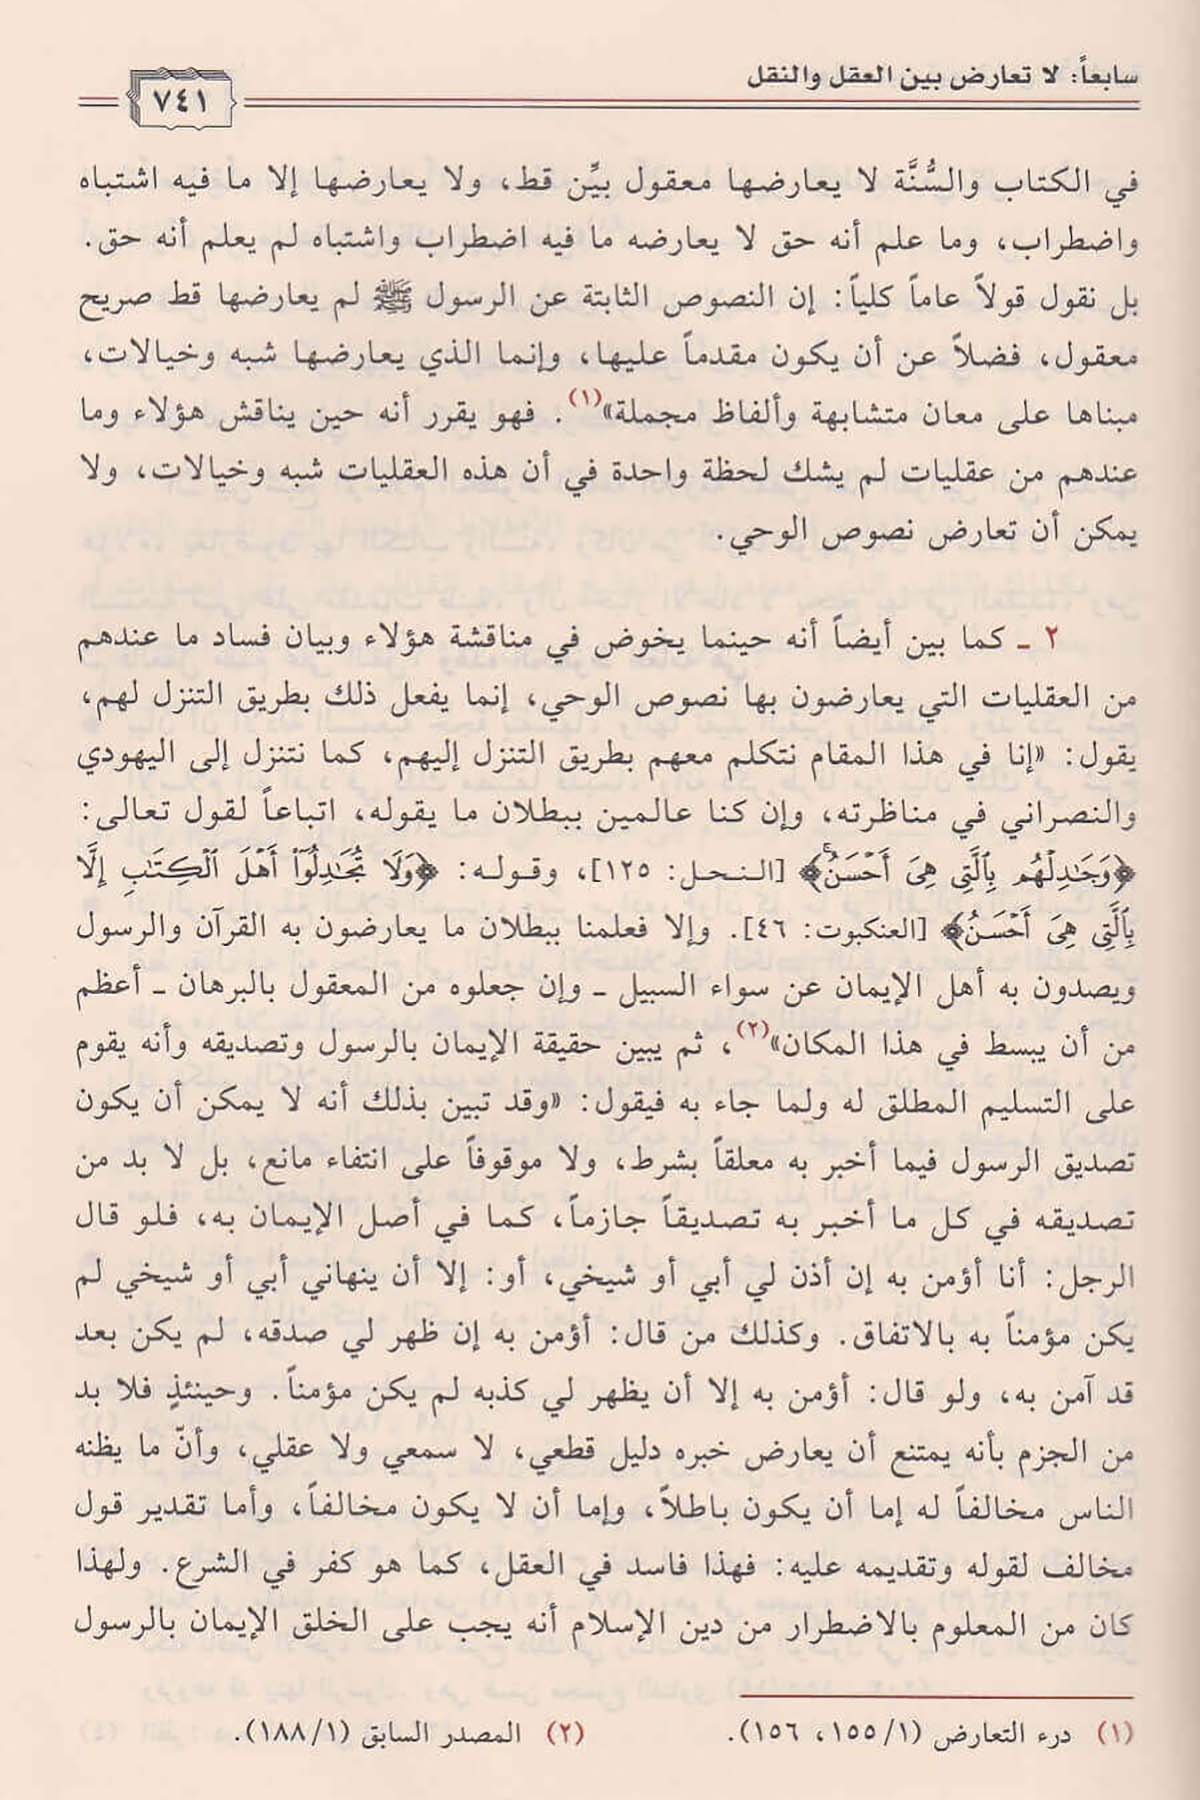 سابعاً: لا تعارض بين العقل والنقل
٧٤١
في الكتاب والسُّنَّة لا يعارضها معقول بيِّن قط، ولا يعارضها إلا ما فيه اشتباه
واضطراب، وما علم أنه حق لا يعارضه ما فيه اضطراب واشتباه لم يعلم أنه حق.
بل نقول قولاً عاماً كلياً: إن النصوص الثابتة عن الرسول ﷺ لم يعارضها قط صريح
معقول، فضلاً عن أن يكون مقدماً عليها، وإنما الذي يعارضها شبه وخيالات،
مبناها على معان متشابهة وألفاظ مجملة»(١). فهو يقرر أنه حين يناقش هؤلاء وما
عندهم من عقليات لم يشك لحظة واحدة في أن هذه العقليات شبه وخيالات، ولا
يمكن أن تعارض نصوص الوحي.
٢ ـ كما بين أيضاً أنه حينما يخوض في مناقشة هؤلاء وبيان فساد ما عندهم
من العقليات التي يعارضون بها نصوص الوحي، إنما يفعل ذلك بطريق التنزل لهم،
يقول: «إنا في هذا المقام نتكلم معهم بطريق التنزل إليهم، كما نتنزل إلى اليهودي
والنصراني في مناظرته، وإن كنا عالمين ببطلان ما يقوله، اتباعاً لقول تعالى:
﴿وَجَٰدِلْهُم بِٱلَّتِى هِىَ أَحْسَنُۚ﴾ [النحل: ١٢٥]، وقوله: ﴿وَلَا تُجَٰدِلُوٓا۟ أَهْلَ ٱلْكِتَٰبِ إِلَّا
بِٱلَّتِى هِىَ أَحْسَنُ﴾ [العنكبوت: ٤٦]. وإلا فعلمنا ببطلان ما يعارضون به القرآن والرسول
ويصدون به أهل الإيمان عن سواء السبيل ـ وإن جعلوه من المعقول بالبرهان ـ أعظم
من أن يبسط في هذا المكان»(٢)، ثم يبين حقيقة الإيمان بالرسول وتصديقه وأنه يقوم
على التسليم المطلق له ولما جاء به فيقول: «وقد تبين بذلك أنه لا يمكن أن يكون
تصديق الرسول فيما أخبر به معلقاً بشرط، ولا موقوفاً على انتفاء مانع، بل لا بد من
تصديقه في كل ما أخبر به تصديقاً جازماً، كما في أصل الإيمان به، فلو قال
الرجل: أنا أؤمن به إن أذن لي أبي أو شيخي، أو: إلا أن ينهاني أبي أو شيخي لم
يكن مؤمناً به بالاتفاق. وكذلك من قال: أؤمن به إن ظهر لي صدقه، لم يكن بعد
قد آمن به، ولو قال: أؤمن به إلا أن يظهر لي كذبه لم يكن مؤمناً. وحينئذٍ فلا بد
من الجزم بأنه يمتنع أن يعارض خبره دليل قطعي، لا سمعي ولا عقلي، وأنّ ما يظنه
الناس مخالفاً له إما أن يكون باطلاً، وإما أن لا يكون مخالفاً، وأما تقدير قول
مخالف لقوله وتقديمه عليه: فهذا فاسد في العقل، كما هو كفر في الشرع. ولهذا
كان من المعلوم بالاضطرار من دين الإسلام أنه يجب على الخلق الإيمان بالرسول
(١) درء التعارض (١/ ١٥٥، ١٥٦). (٢) المصدر السابق (١/ ١٨٨).